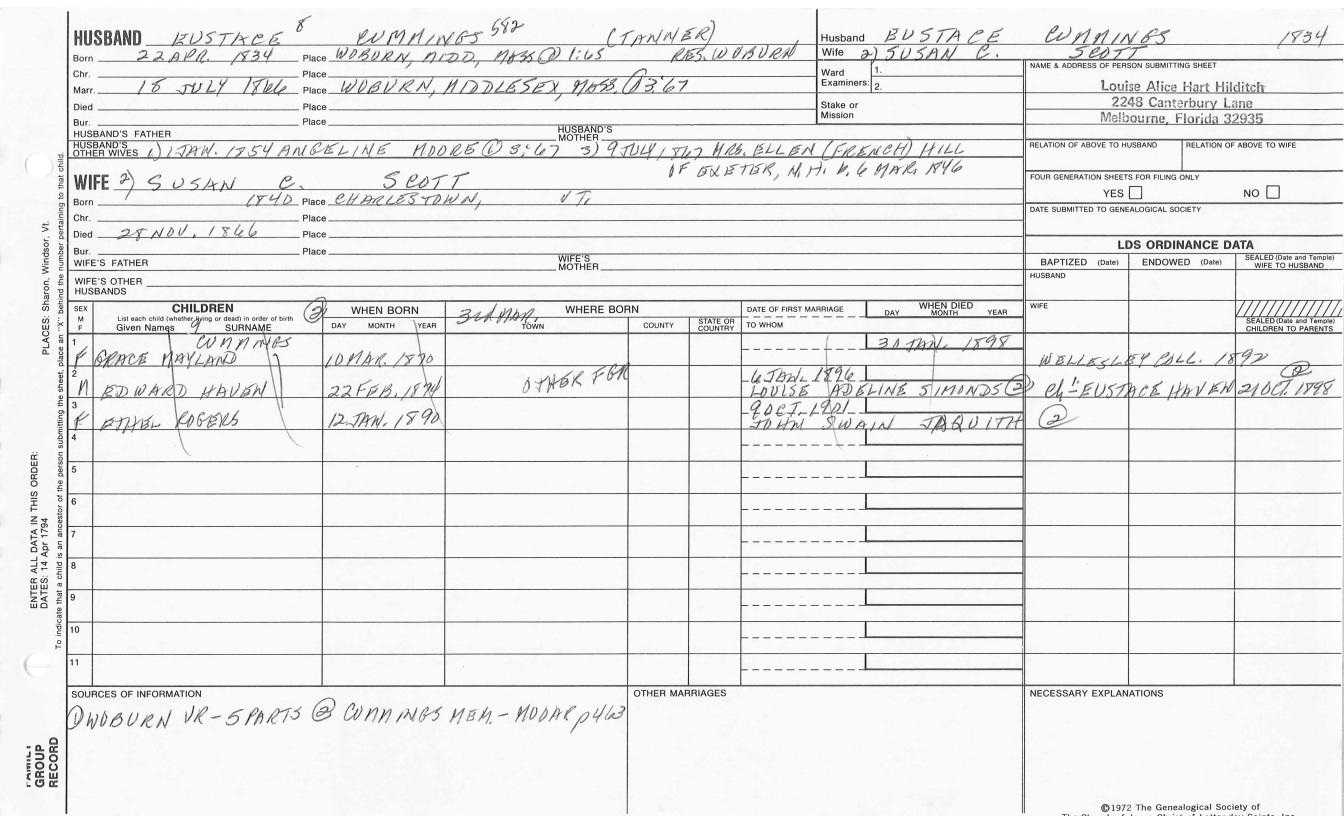 HUSBAND EUSTACE 8 CUMMINGS 582 (TANNER)
Born 22 APR. 1834 Place WOBURN, MIDD, MASS ① 1:65 RES. WOBURN
Chr. Place
Marr. 18 JULY 1866 Place WOBURN, MIDDLESEX, MASS. ① 3:67
Died Place
Bur. Place
HUSBAND'S FATHER HUSBAND'S MOTHER
HUSBAND'S OTHER WIVES 1) 1 JAN. 1854 ANGELINE MOORE ① 3:67 3) 9 JULY 1867 MRS. ELLEN (FRENCH) HILL
OF EXETER, N.H. b. 6 MAR. 1846
WIFE 2) SUSAN C. SCOTT
Born 1840 Place CHARLESTOWN, VT.
Chr. Place
Died 28 NOV. 1866 Place
Bur. Place
WIFE'S FATHER WIFE'S MOTHER
WIFE'S OTHER HUSBANDS
Husband EUSTACE CUMMINGS 1834
Wife 2) SUSAN C. SCOTT
Ward Examiners: 1.
2.
Stake or Mission
NAME & ADDRESS OF PERSON SUBMITTING SHEET
Louise Alice Hart Hilditch
2248 Canterbury Lane
Melbourne, Florida 32935
RELATION OF ABOVE TO HUSBAND RELATION OF ABOVE TO WIFE
FOUR GENERATION SHEETS FOR FILING ONLY
YES NO
DATE SUBMITTED TO GENEALOGICAL SOCIETY
LDS ORDINANCE DATA
BAPTIZED (Date) ENDOWED (Date) SEALED (Date and Temple) WIFE TO HUSBAND
HUSBAND
WIFE
SEALED (Date and Temple) CHILDREN TO PARENTS
SEX M F
CHILDREN ②
List each child (whether living or dead) in order of birth
Given Names 9 SURNAME
WHEN BORN
DAY MONTH YEAR
3rd MAR. WHERE BORN
TOWN COUNTY STATE OR COUNTRY
DATE OF FIRST MARRIAGE
TO WHOM
WHEN DIED
DAY MONTH YEAR
CUMMINGS
1 F GRACE MAYLAND 10 MAR. 1870 30 JAN. 1898 WELLESLEY COLL. 1892 ②
2 M EDWARD HAVEN 22 FEB. 1874 OTHER FGR 6 JAN. 1896 LOUISE ADELINE SIMONDS ② Ch' EUSTACE HAVEN 21 OCT. 1898
3 F ETHEL ROGERS 12 JAN. 1890 9 OCT. 1901 JOHN SWAIN JAQUITH ②
4
5
6
7
8
9
10
11
SOURCES OF INFORMATION
① WOBURN VR - 5 PARTS ② CUMMINGS MEM. - MOOAR p463
OTHER MARRIAGES
NECESSARY EXPLANATIONS
©1972 The Genealogical Society of
PLACES: Sharon, Windsor, Vt.
ENTER ALL DATA IN THIS ORDER:
DATES: 14 Apr 1794
To indicate that a child is an ancestor of the person submitting the sheet, place an "X" behind the number pertaining to that child.
FAMILY GROUP RECORD